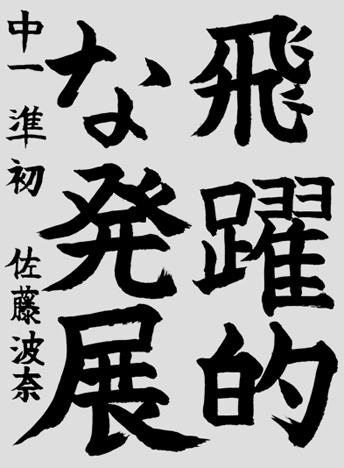 飛躍的
な発展
中一 準初 佐藤波奈